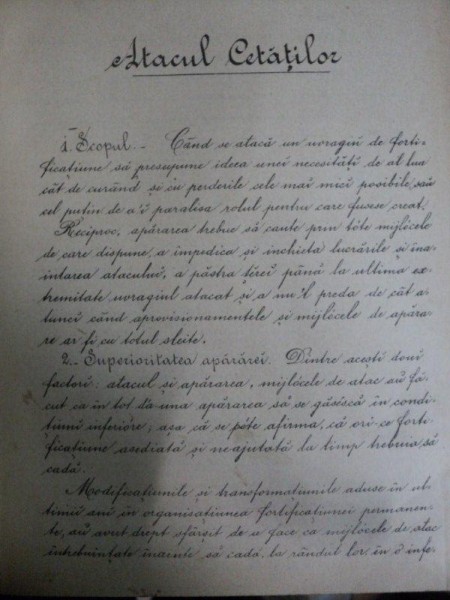 Atacul Cetăților
1. Scopul. - Când se atacă un uoragiu de forti-
ficațiune să presupune ideea unei necesități de al lua
cât de curând și cu perderile cele mai mici posibile sau
cel puțin de a'i paralisa rolul pentru care fusese creat.
Reciproc, apărarea trebue să caute prin tóte mijlócele
de care dispune, a împedica și închieta lucrările și îna-
intarea atacului, a păstra țărei până la ultima ex-
tremitate uoragiul atacat și a nu'l preda de cât a-
tunci când aprovisionamentele și mijlócele de apăra-
re ar fi cu totul sleite.
2. - Superioritatea apărărei. Dintre acești doui
factori: atacul și apărarea, mijlócele de atac au fă-
cut ca în tot da una apărarea să se găsiscă în condi-
țiuni inferiore; așa că se póte afirma, că ori-ce forti-
ficațiune asediată și neajutată la timp trebuia să
cadă.
Modificațiunile și transformațiunile aduse în ul-
timii ani în organisațiunea fortificațiunei permanen-
te, au avut drept sfârșit de a face ca mijlócele de atac
întrebuințate înainte să cadă, la rândul lor în o infe-